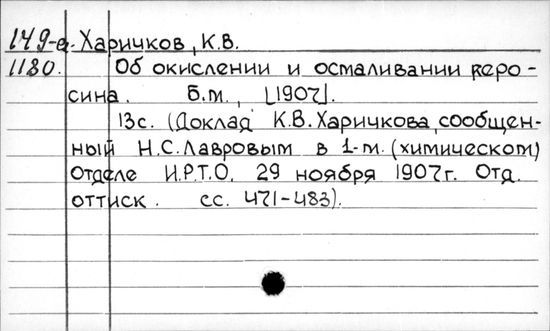 149-а Харичков, К.В.
1180. Об окислении и осмаливании керо-
сина. Б.м., [1907].
13с. (Доклад К.В.Харичкова, сообщен-
ный Н.С.Лавровым в 1-м. (химическом)
Отделе И.Р.Т.О. 29 ноября 1907г. Отд.
оттиск. сс. 471-483).